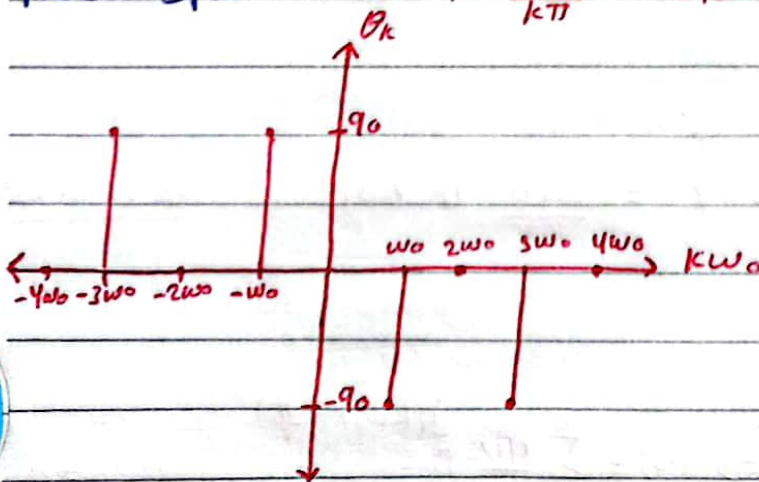 kπ
θk
90
ω0 2ω0 3ω0 4ω0
kω0
-4ω0 -3ω0 -2ω0 -ω0
-90